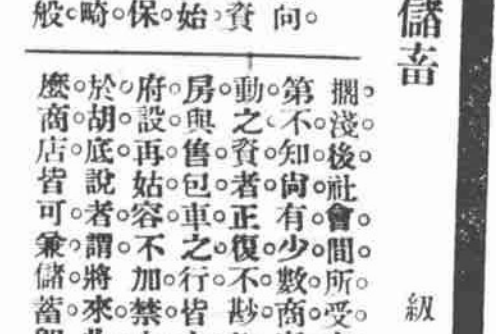 儲畜
級
向
資
始
保
畸
般
擱淺後社會間所受
第不知尙有少數商
動之資者正復不尠
房與售包車之行皆
府設再姑容不加禁
於胡底說者謂將來
麽商店皆可兼儲蓄